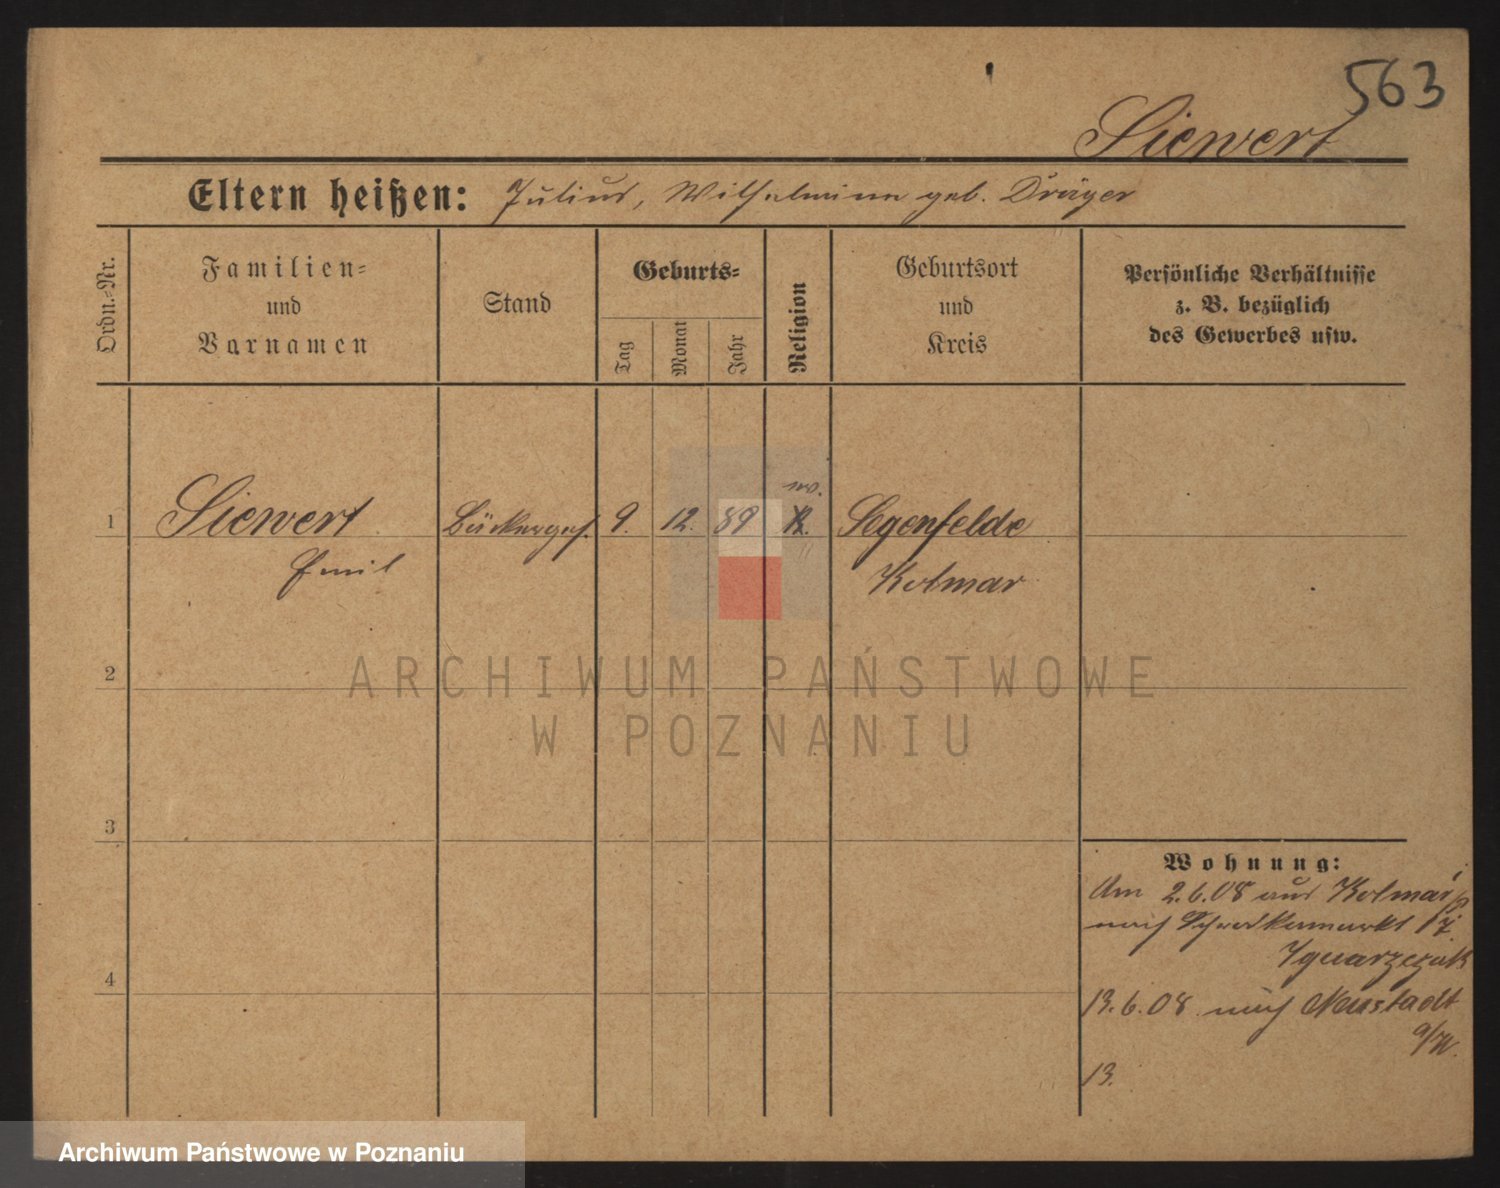 563
Siewert
Eltern heißen: Julius, Wilhelmine geb. Dräger
Ordn.-Nr.
Familien-
und
Vornamen
Stand
Geburts-
Tag
Monat
Jahr
Religion
Geburtsort
und
Kreis
Persönliche Verhältnisse
z. B. bezüglich
des Gewerbes usw.
ev.
1 Siewert Bäckerges. 9. 12. 89 K. Segenfelde
Emil Kolmar
2
ARCHIWUM PAŃSTWOWE
W POZNANIU
3
Wohnung:
Am 2.6.08 aus Kolmar i/P
nach 17
4
13.6.08 nach Neustadt
a/W.
13.
Archiwum Państwowe w Poznaniu